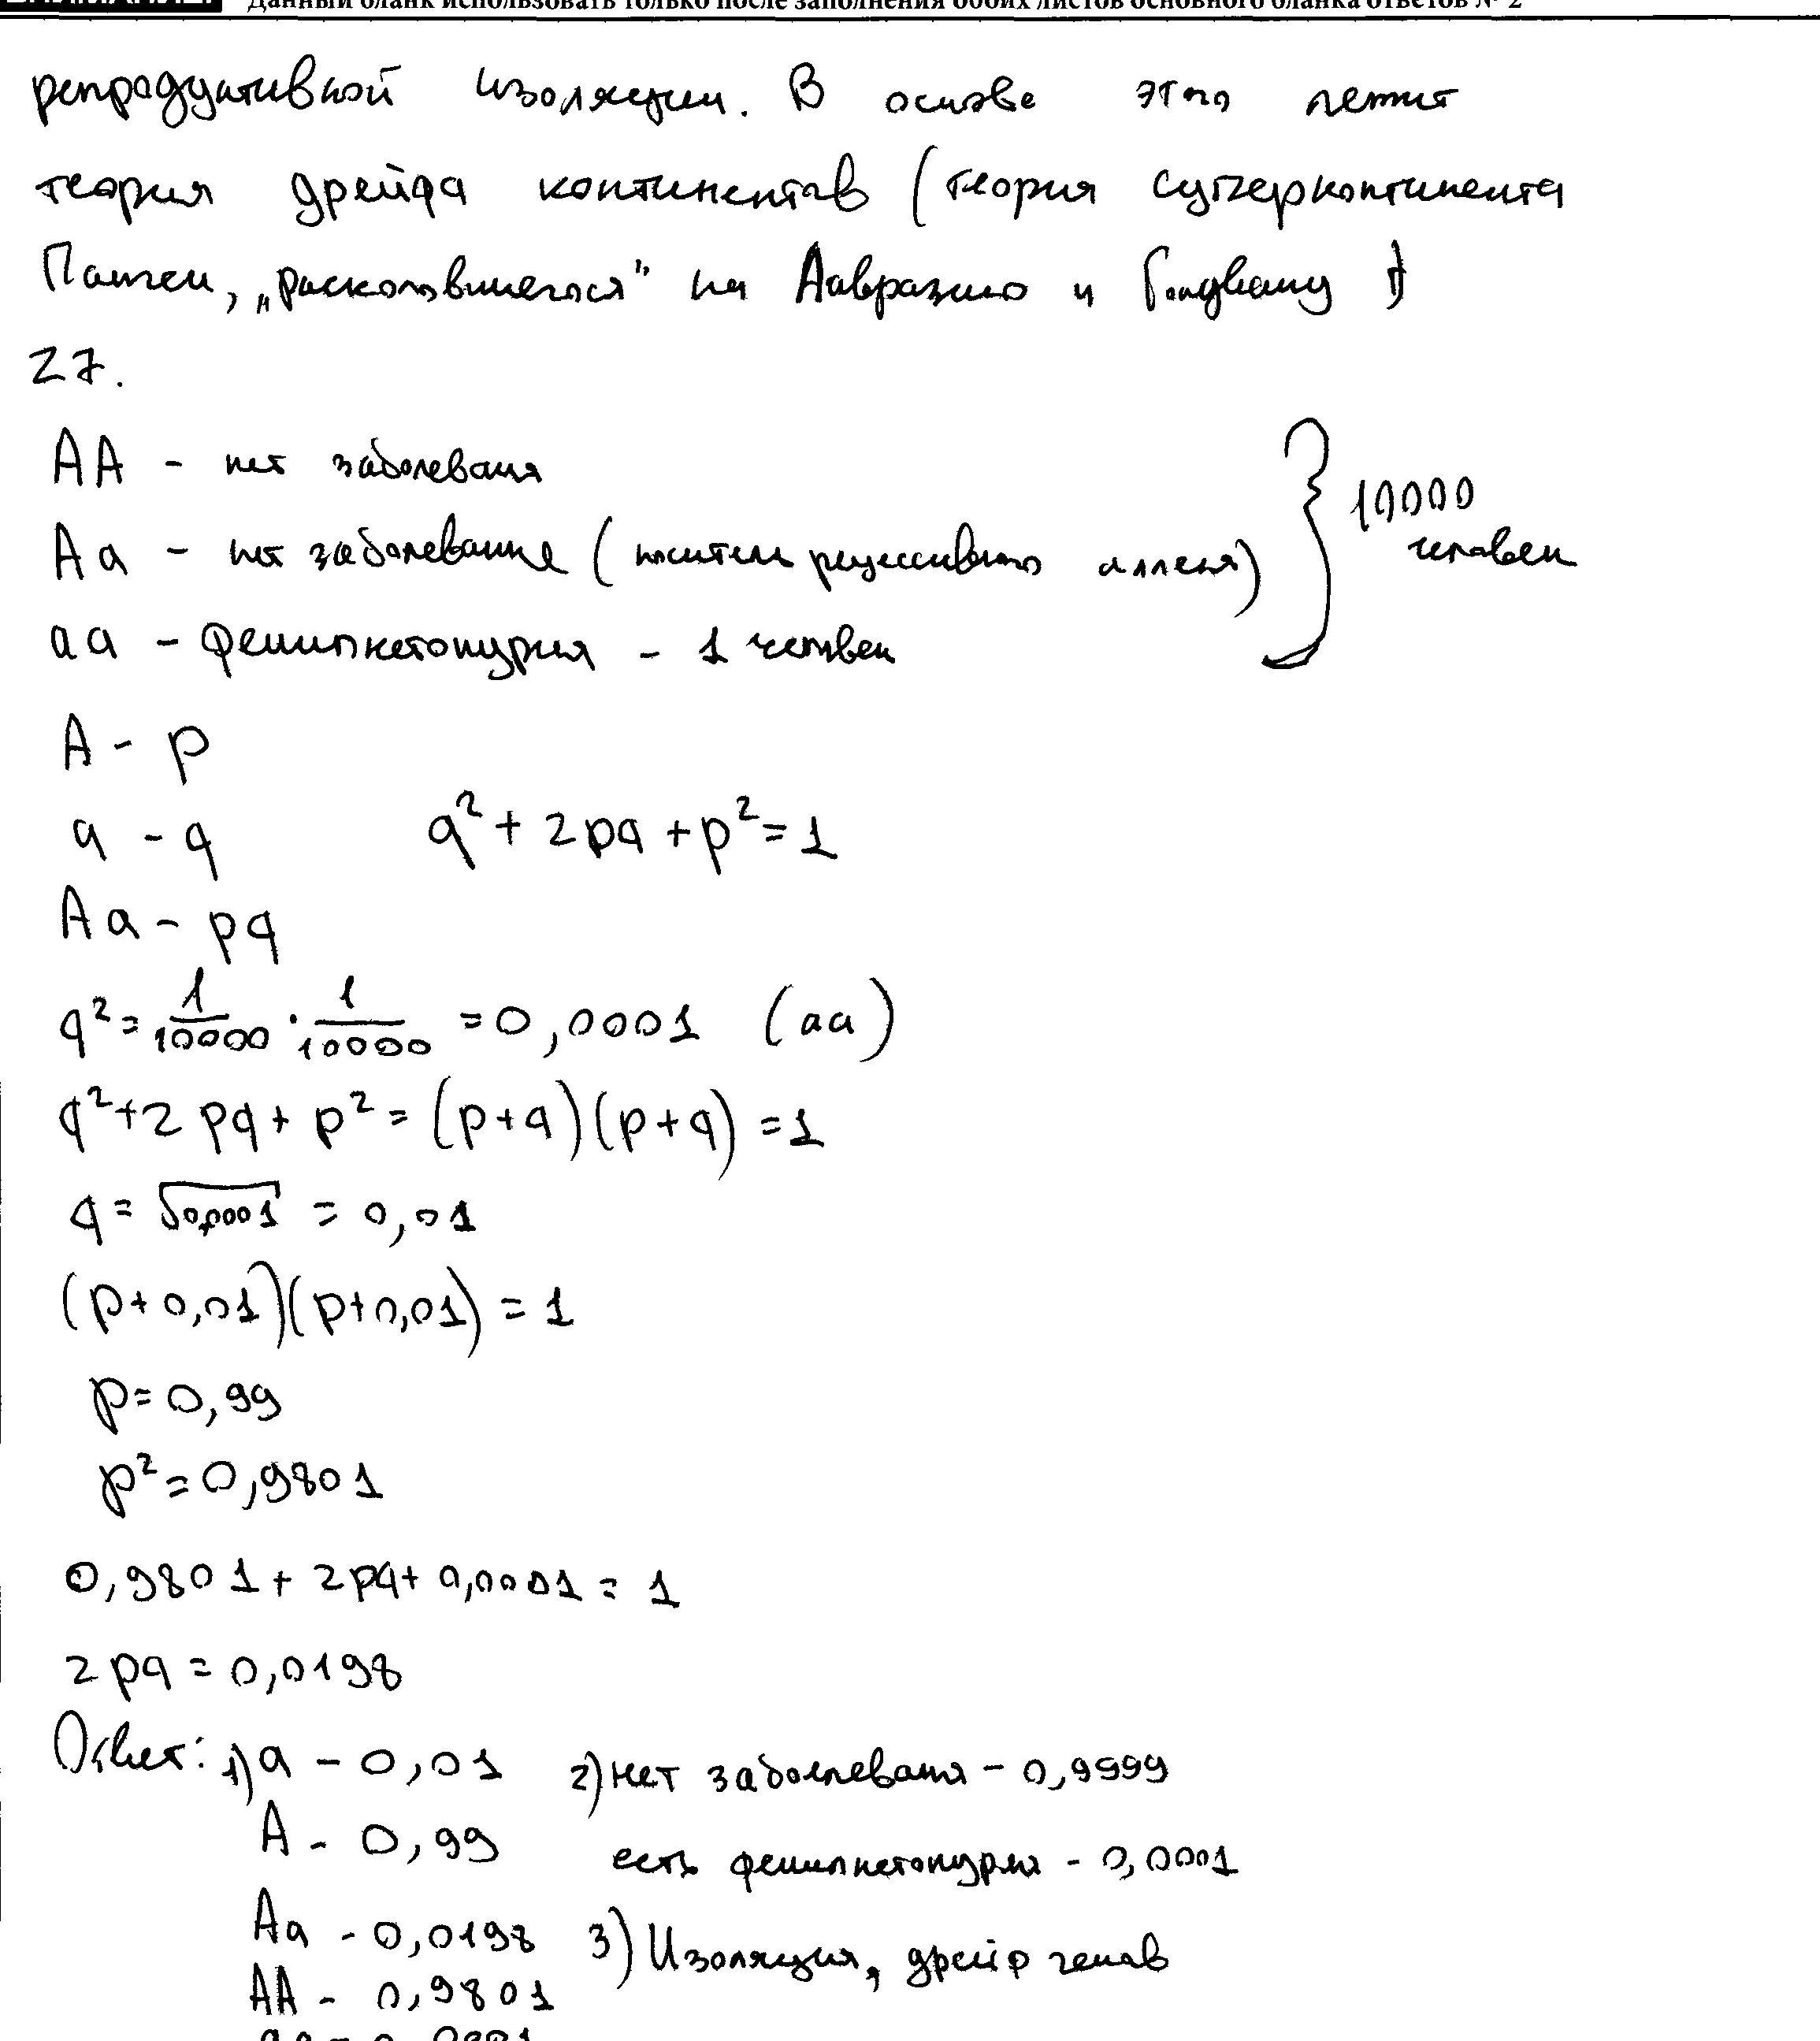 Данный бланк использовать только после заполнения обоих листов основного бланка ответов № 2
репродуктивной изоляции. В основе этого лежит
теория дрейфа континентов (теория суперконтинента
Пангеи, „расколовшегося" на Лавразию и Гондвану)
27.
AA - нет заболевания
Aa - нет заболевание (носитель рецессивного аллеля)
aa - фенилкетонурия - 1 человек
} 10000
человек
A - p
a - q
q² + 2pq + p² = 1
Aa - pq
q² = 1/10000 · 1/10000 = 0,0001 (aa)
q² + 2pq + p² = (p+q)(p+q) = 1
q = √0,0001 = 0,01
(p+0,01)(p+0,01) = 1
p = 0,99
p² = 0,9801
0,9801 + 2pq + 0,0001 = 1
2pq = 0,0198
Ответ: 1) a - 0,01 2) нет заболевания - 0,9999
A - 0,99 есть фенилкетонурия - 0,0001
Aa - 0,0198 3) Изоляция, дрейф генов
AA - 0,9801